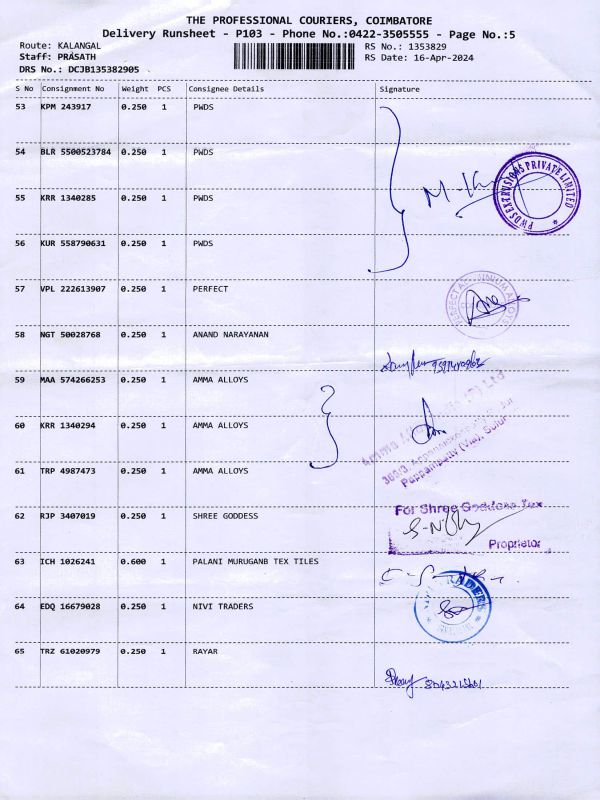 THE PROFESSIONAL COURIERS, COIMBATORE
Delivery Runsheet - P103 - Phone No.:0422-3505555 - Page No.:5
Route: KALANGAL RS No.: 1353829
Staff: PRASATH RS Date: 16-Apr-2024
DRS No.: DCJB135382905
S No Consignment No Weight PCS Consignee Details Signature
53 KPM 243917 0.250 1 PWDS
54 BLR 5500523784 0.250 1 PWDS
PWDS EXTRUSIONS PRIVATE LIMITED
55 KRR 1340285 0.250 1 PWDS
56 KUR 558790631 0.250 1 PWDS
57 VPL 222613907 0.250 1 PERFECT
PERFECT ALUMINIUM ALLOYS
58 NGT 50028768 0.250 1 ANAND NARAYANAN
59 MAA 574266253 0.250 1 AMMA ALLOYS
60 KRR 1340294 0.250 1 AMMA ALLOYS
Pappampatty (Via), Sulur
61 TRP 4987473 0.250 1 AMMA ALLOYS
62 RJP 3407019 0.250 1 SHREE GODDESS
For Shree Goddess Tex
Proprietor
63 ICH 1026241 0.600 1 PALANI MURUGANB TEX TILES
64 EDQ 16679028 0.250 1 NIVI TRADERS
TRADERS
65 TRZ 61020979 0.250 1 RAYAR